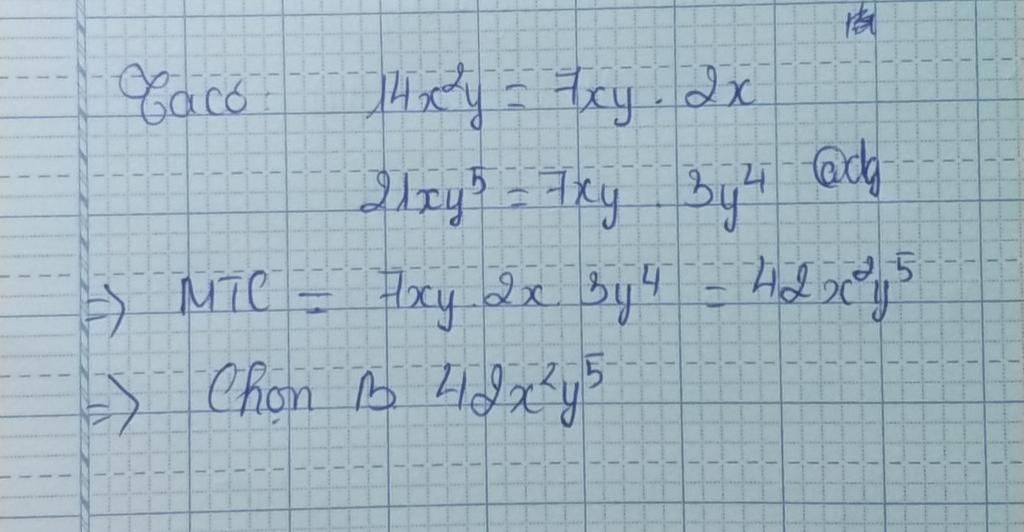 Ta có: 14x²y = 7xy . 2x
21xy⁵ = 7xy . 3y⁴ @dg
=> MTC = 7xy . 2x . 3y⁴ = 42x²y⁵
=> Chọn B. 42x²y⁵